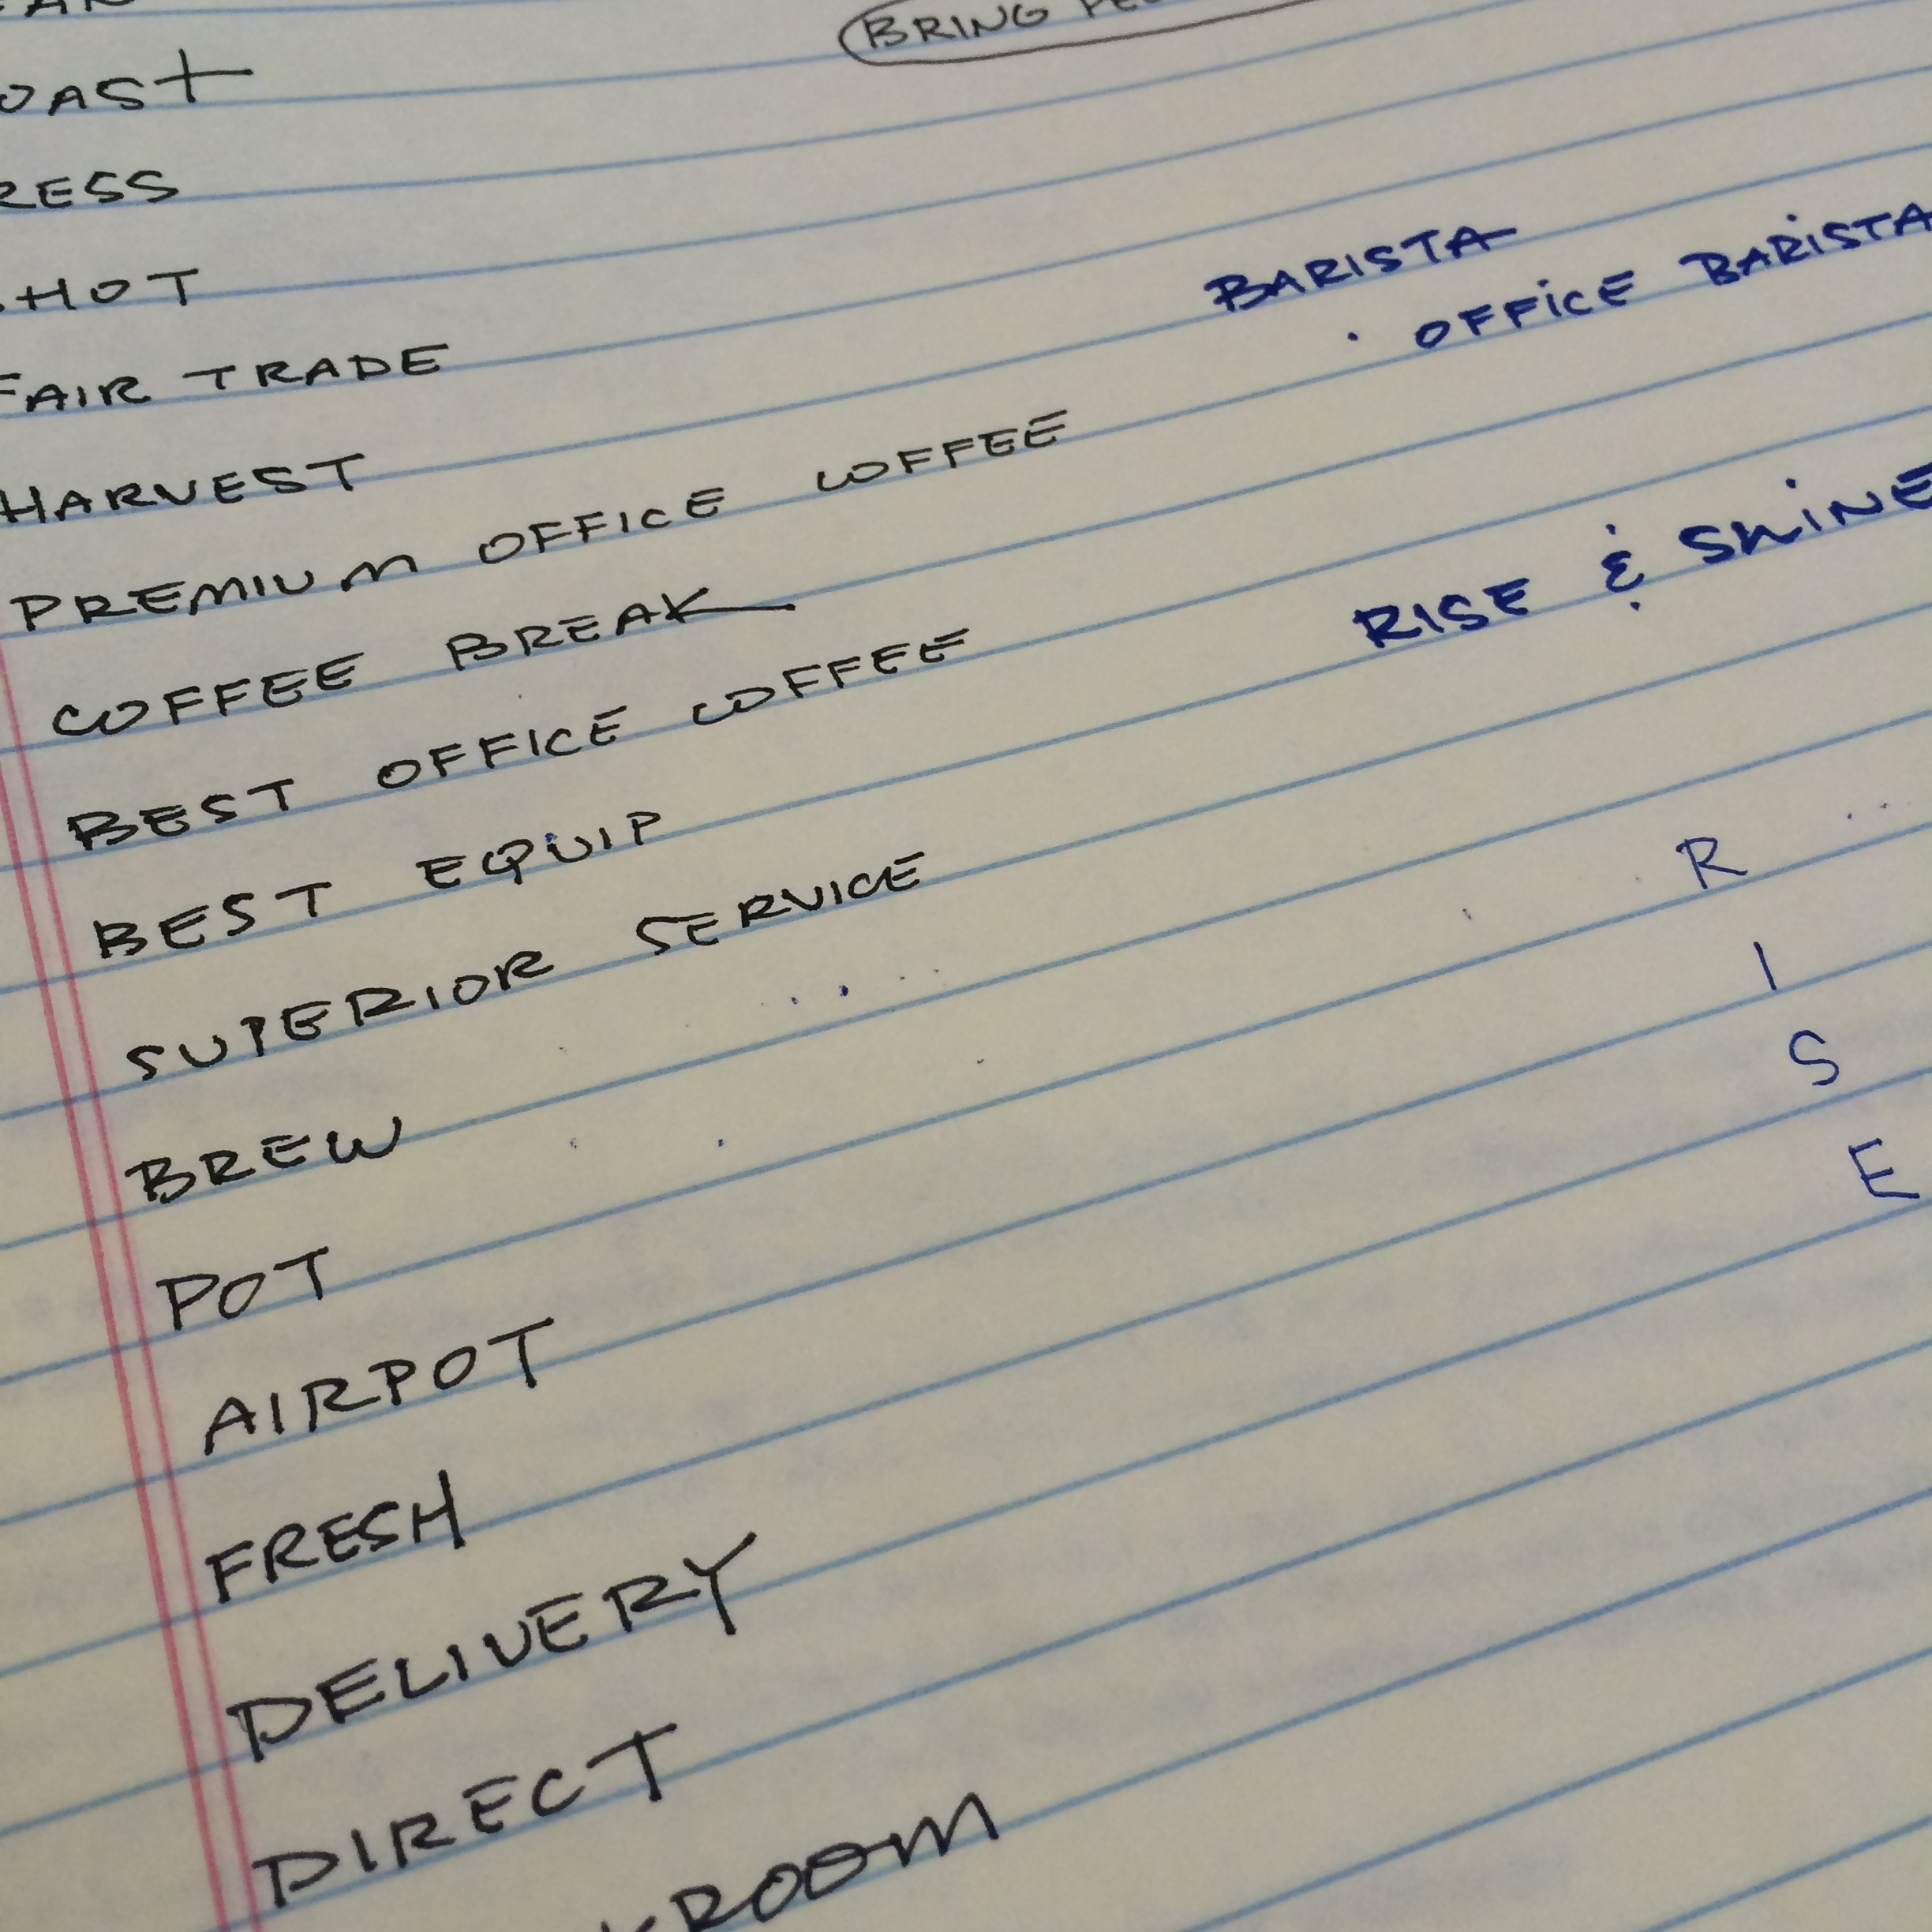 BRING
OAST
RESS
HOT
FAIR TRADE
HARVEST
PREMIUM OFFICE COFFEE
COFFEE BREAK
BEST OFFICE COFFEE
BEST EQUIP
SUPERIOR SERVICE
BREW
POT
AIRPOT
FRESH
DELIVERY
DIRECT
KROOM
BARISTA
· OFFICE BARISTA
RISE & SHINE
R
I
S
E